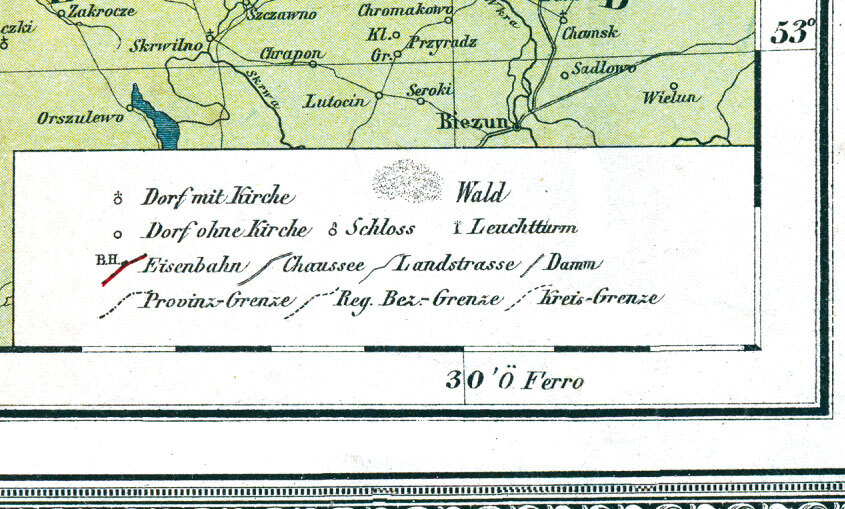 Zakrocze
Szczawno
Chromakowo
Wkra
czki
Skrwilno
Kl.
Przyradz
Gr.
Chamsk
53°
Chrapon
Skrwa
Sadlowo
Lutocin
Seroki
Wielun
Orszulewo
Biezun
Dorf mit Kirche
Wald
Dorf ohne Kirche
Schloss
Leuchtturm
B.H.
Eisenbahn
Chaussee
Landstrasse
Damm
Provinz-Grenze
Reg. Bez.-Grenze
Kreis-Grenze
30' Ö Ferro